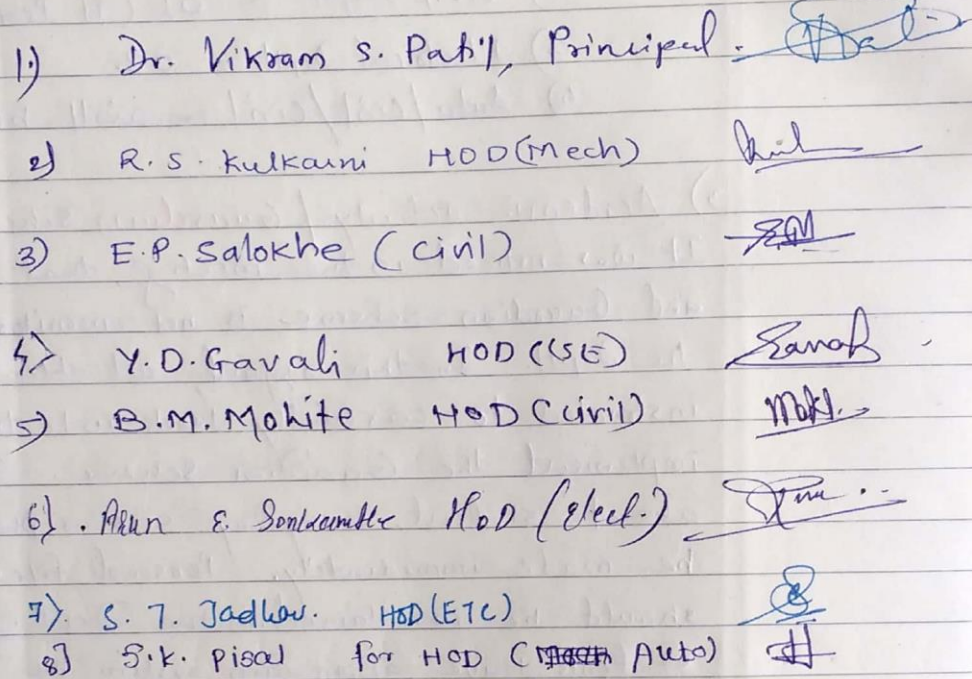 1) Dr. Vikram S. Patil, Principal.
2) R. S. Kulkarni HOD (Mech)
3) E.P. Salokhe (Civil)
4) Y.D. Gavali HOD (CSE)
5) B.M. Mohite HOD (Civil)
6) Arun S. HOD (Elect.)
7) S. T. Jadhav. HOD (ETC)
8) S.K. Pisal for HOD (Auto)